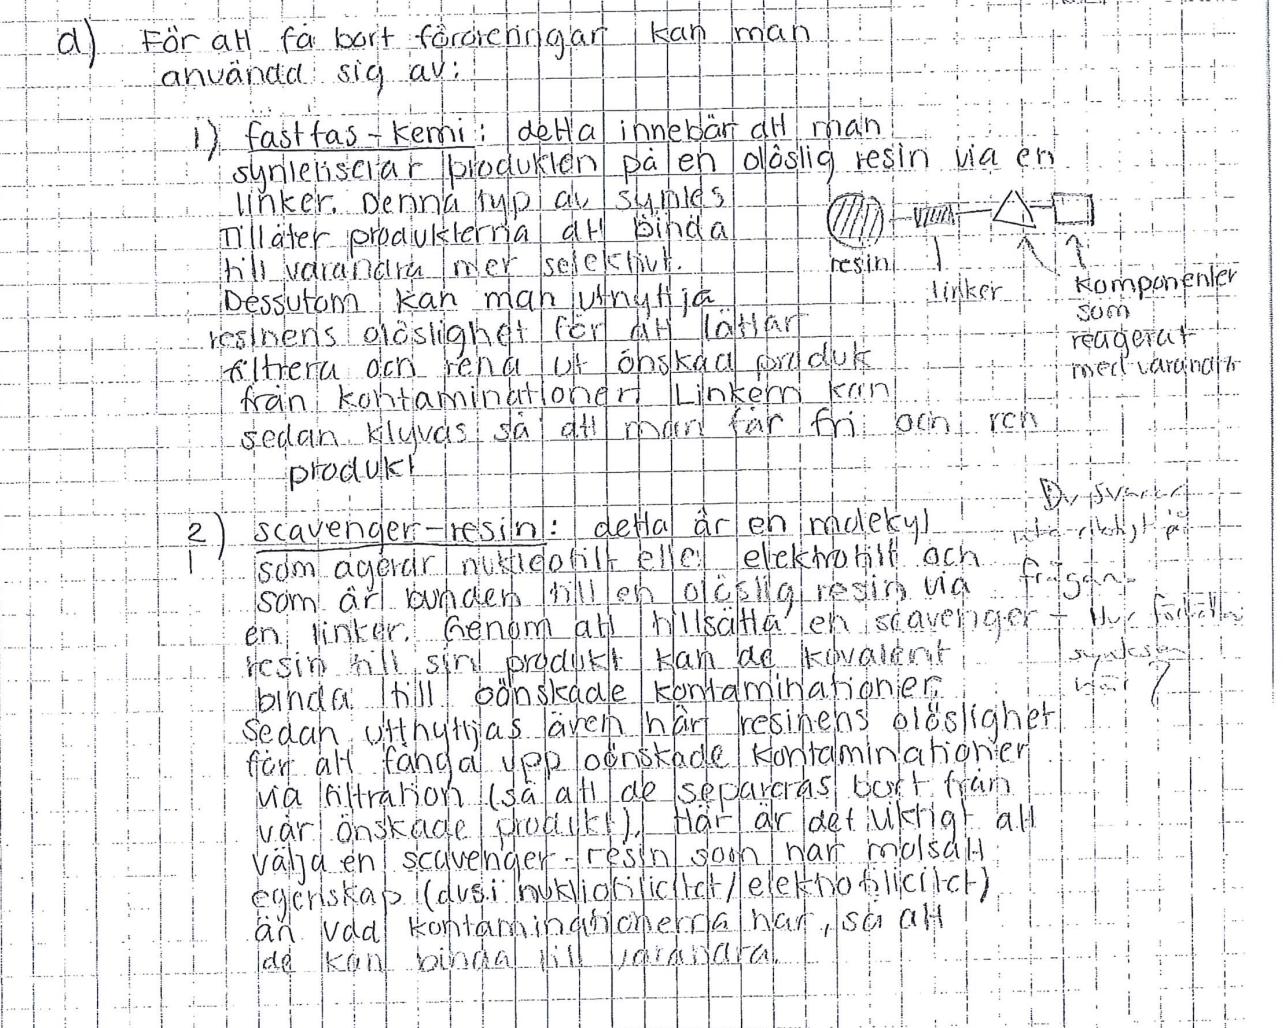 d) För att få bort föroreningar kan man
använda sig av:
1) fastfas-kemi: detta innebär att man
syntetiserar produkten på en olöslig resin via en
linker. Denna typ av syntes
Tillåter produkterna att binda
till varandra mer selektivt.
Dessutom kan man utnyttja
resinens olöslighet för att lättar
filtrera och rena ut önskad produk
från kontaminationer. Linkern kan
sedan klyvas så att man får fri och ren
produkt
resin
linker
komponenter
som
reagerat
med varandra
2) scavenger-resin: detta är en molekyl
som agerar nukleofilt elle elektrofilt och
som är bunden till en olöslig resin via
en linker. Genom att tillsätta en scavenger-
resin till sin produkt kan de kovalent
binda till oönskade kontaminationer.
Sedan uttnyttjas även här resinens olöslighet
för att fånga upp oönskade kontaminationer
via filtration (så att de separeras bort från
vår önskade produkt). Här är det viktigt att
välja en scavenger-resin som har motsatt
egenskap (dvs. i nukliofilicitet/elektrofilicitet)
än vad kontaminationerna har, så att
de kan binda till varandra.
Du svarar
inte riktigt på
frågan.
Hur förhåller
syntesen
här?